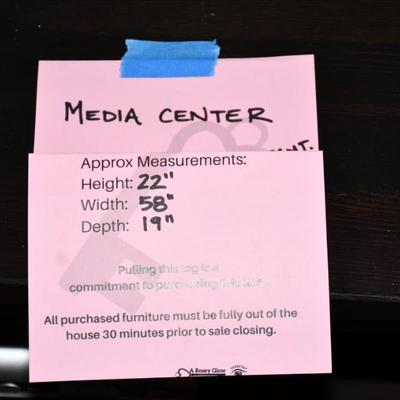 MEDIA CENTER
Approx Measurements:
Height: 22"
Width: 58"
Depth: 19"
Pulling this tag is a
commitment to purchasing
All purchased furniture must be fully out of the
house 30 minutes prior to sale closing.
A Rosey Glow